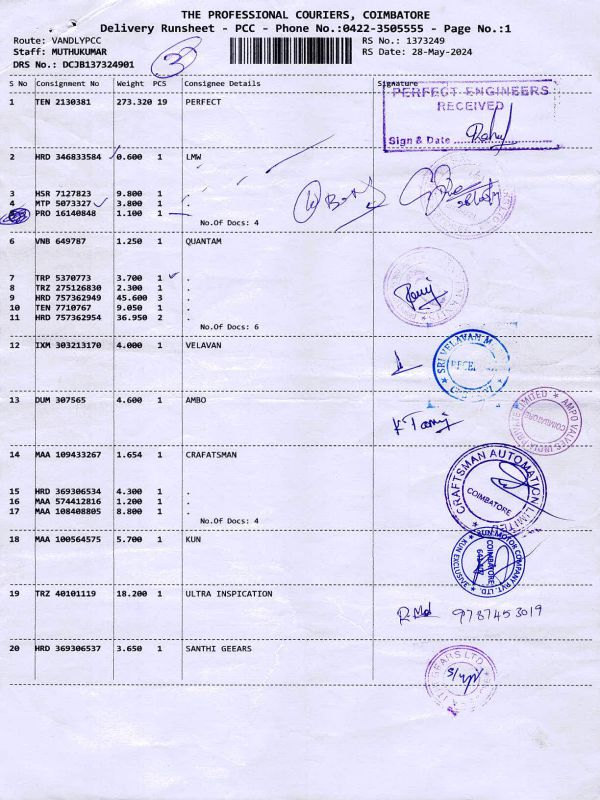 THE PROFESSIONAL COURIERS, COIMBATORE
Delivery Runsheet - PCC - Phone No.:0422-3505555 - Page No.:1
Route: VANDLYPCC RS No.: 1373249
Staff: MUTHUKUMAR RS Date: 28-May-2024
DRS No.: DCJB137324901 3
S No Consignment No Weight PCS Consignee Details Signature
1 TEN 2130381 273.320 19 PERFECT
PERFECT ENGINEERS
RECEIVED
Sign & Date
2 HRD 346833584 0.600 1 LMW
3 HSR 7127823 9.800 1 .
4 MTP 5073327 3.800 1 .
PRO 16140848 1.100 1
No.Of Docs: 4
6 VNB 649787 1.250 1 QUANTAM
7 TRP 5370773 3.700 1 .
8 TRZ 275126830 2.300 1 .
9 HRD 757362949 45.600 3 .
10 TEN 7710767 9.050 1 .
11 HRD 757362954 36.950 2 .
No.Of Docs: 6
12 IXM 303213170 4.000 1 VELAVAN
SRI VELAVAN
13 DUM 307565 4.600 1 AMBO
AMPO VALVES INDIA PRIVATE LIMITED
COIMBATORE
14 MAA 109433267 1.654 1 CRAFATSMAN
CRAFTSMAN AUTOMATION LIMITED
COIMBATORE
15 HRD 369306534 4.300 1 .
16 MAA 574412816 1.200 1 .
17 MAA 108408805 8.800 1 .
No.Of Docs: 4
18 MAA 100564575 5.700 1 KUN
KUN MOTOR COMPANY PVT. LTD.
KUN EXCLUSIVE
COIMBATORE
19 TRZ 40101119 18.200 1 ULTRA INSPICATION
9787453019
20 HRD 369306537 3.650 1 SANTHI GEEARS
GEARS LTD